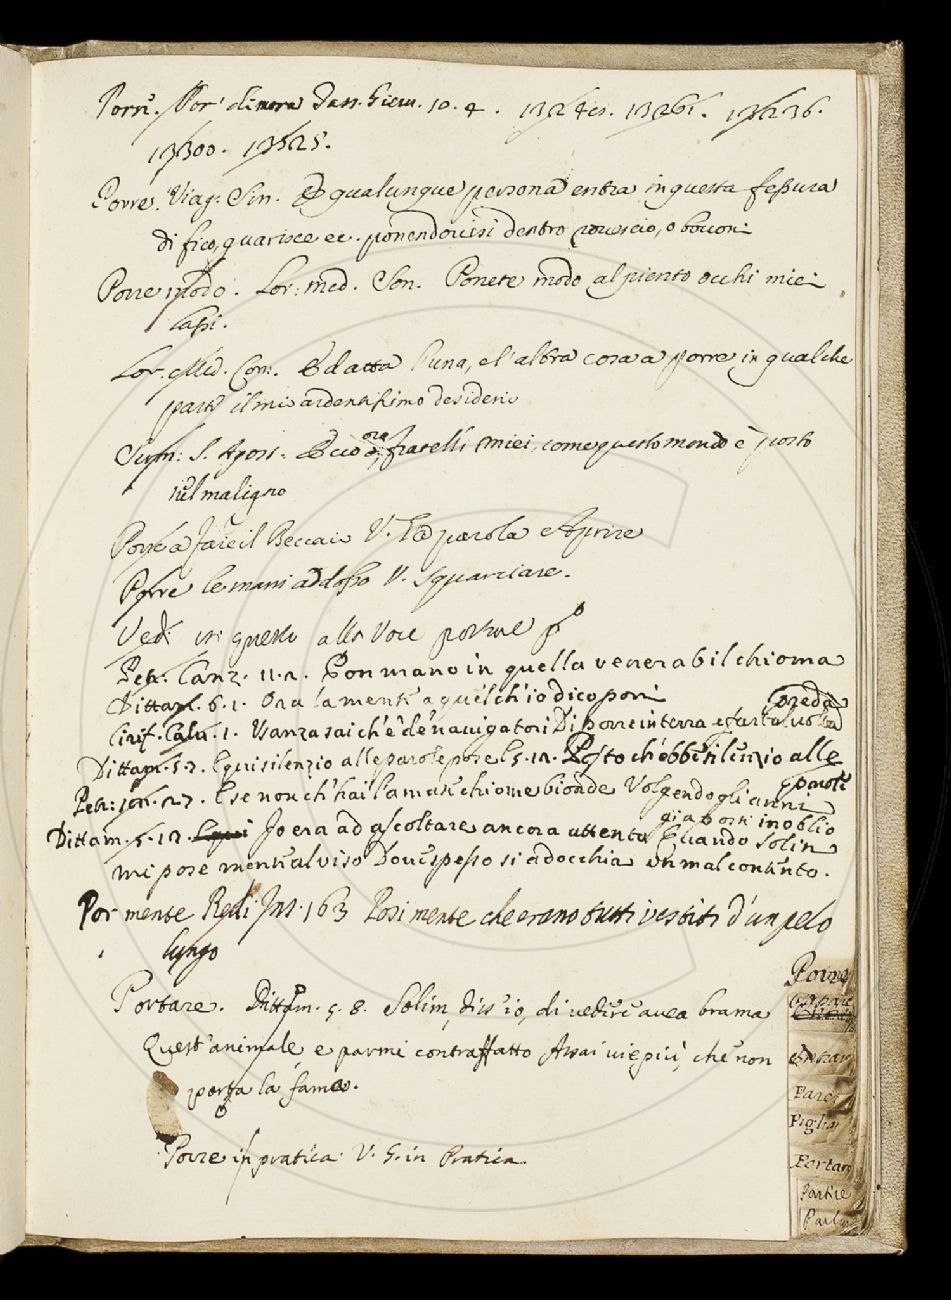 Porsi. Por' dimora Dan. Giem. 10. 4.
Porre. Viag: Sin. E qualunque persona entra in questa fessura
di fico, guarisce ec. ponendovisi dentro rovescio, o boccon:
Porre modo. Lor: med. Son. Ponete modo al pianto occhi miei
lassi.
Lor. Med. Com. È datta l'una, e l'altra cosa a porre in qualche
parte il mio ardentissimo desiderio
Serm: S. Agost. E ciò ora, fratelli miei, come questo mondo è posto
sul maligno
Porre a fare il Beccaio V. parola Aprire
Porre le mani addosso V. Squarciare.
Vedi in questo alla Voce portare
Petr. Canz. 11. 2. Pon mano in quella venerabil chioma
Dittam. 6. 1. Ora la mente a quel ch'io dico poni
Cirif. Calv. 1. Usanza sai ch'è de' navigatori Di porre in terra e far talvolta preda
Dittam. 5. 3. E qui silenzio alle parole pose E 5. 12. Posto ch'ebbe silenzio alle parole
Petr: son. 27. E se non ch'hai l'amate chiome bionde Volgendo gli anni
già posti in oblio
Dittam. 5. 17. Io era ad ascoltare ancora attento Quando Solin
mi pose mente al viso Dove spesso si adocchia un mal contento.
Por mente Redi. Ins. 163 Posi mente che erano tutti vestiti d'un pelo
lungo
Portare. Dittam. 5. 8. Solin, diss'io, di vedere avea brama
Quest'animale e parmi contraffatto Assai vie più, che non
porta la fama.
Porre in pratica. V. S. in Pratica
Porre
Piglia
Portare
Partire